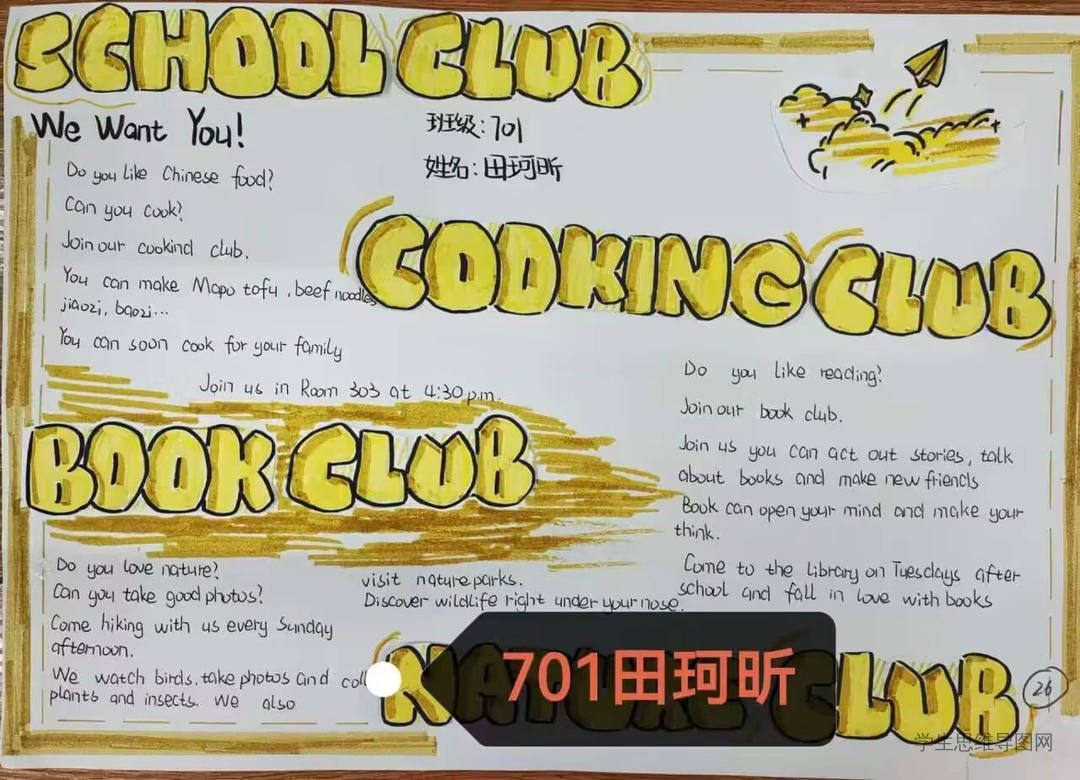 SCHOOL CLUB
We Want You!
班级:701
姓名:田珂昕
Do you like Chinese food?
Can you cook?
Join our cookind club.
You can make Mapo tofu, beef noodles
jiaozi, baozi...
You can soon cook for your family
Join us in Room 303 at 4:30 p.m.
COOKING CLUB
BOOK CLUB
Do you like reading?
Join our book club.
Join us you can act out stories, talk
about books and make new friends
Book can open your mind and make your
think.
Come to the library on Tuesdays after
school and fall in love with books
Do you love nature?
Can you take good photos?
Come hiking with us every Sunday
afternoon.
We watch birds. take photos and coll
plants and insects. We also
visit nature parks.
Discover wildlife right under your nose.
NATURE CLUB
701田珂昕
26
学生思维导图网